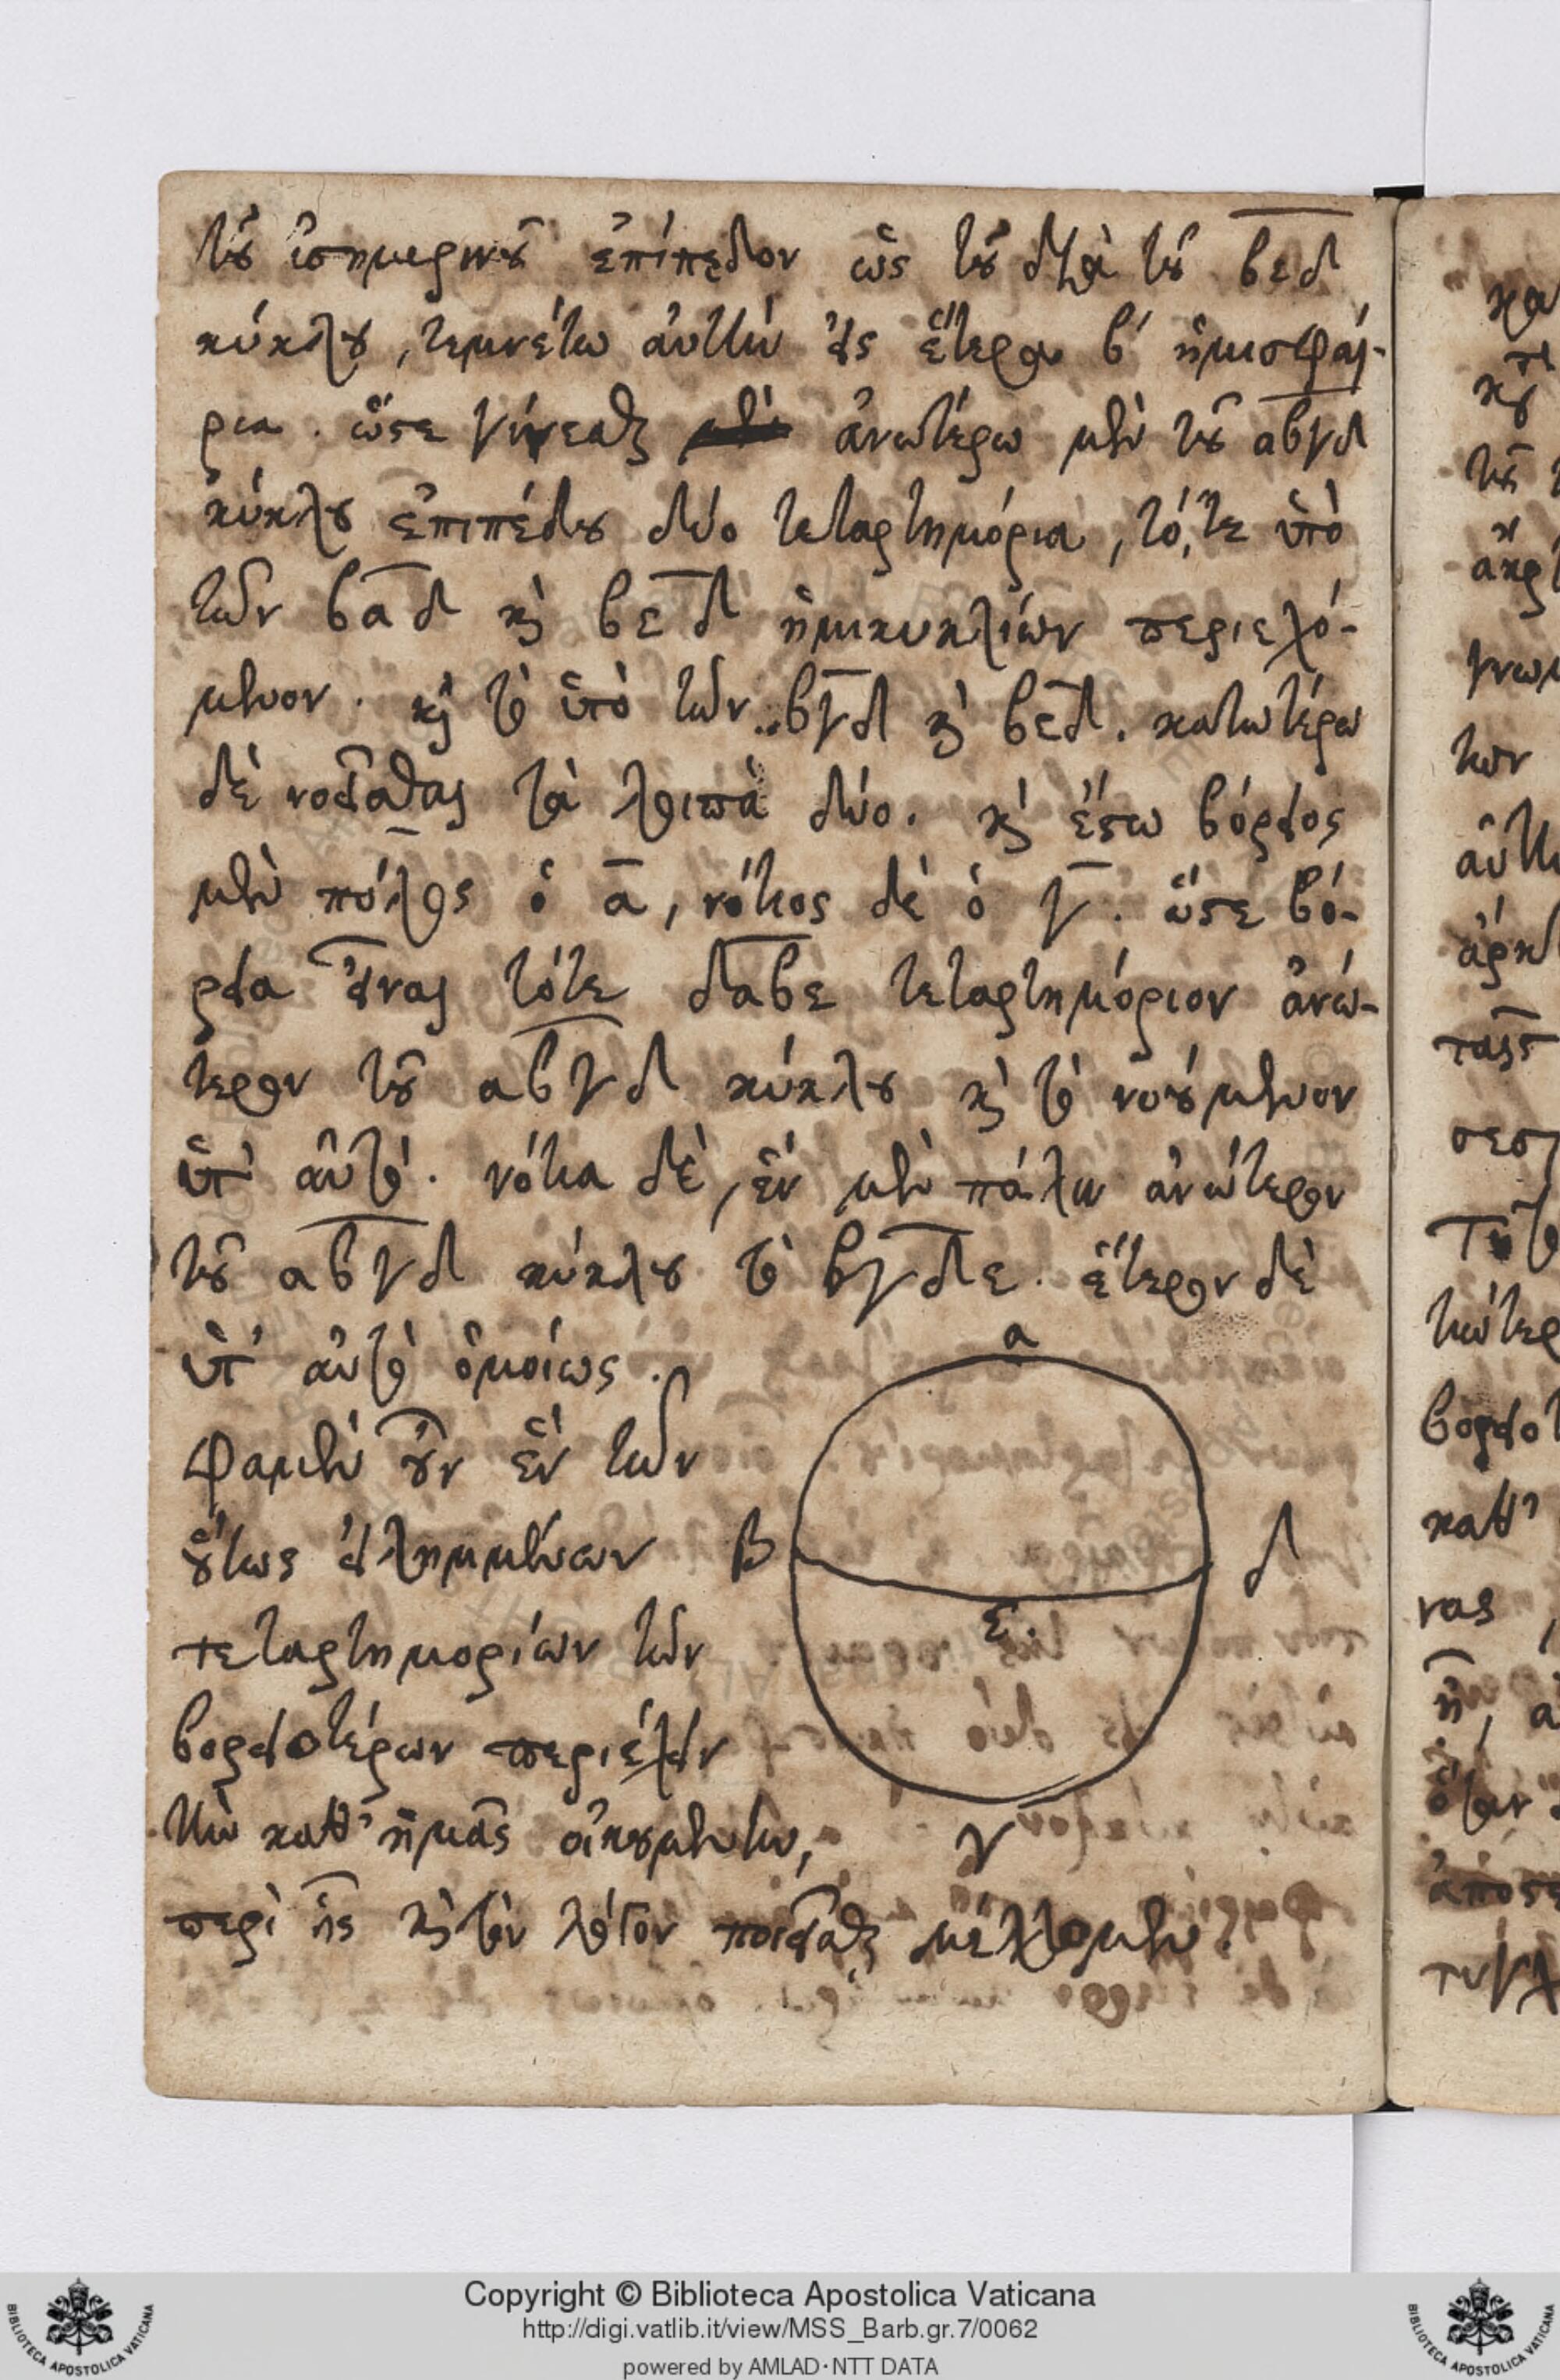 τοῦ ἰσημερινοῦ ἐπίπεδον ὡς τοῦ διὰ τοῦ βεδ
κύκλου, τεμνέτω αὐτὴν εἰς ἕτερα β΄ ἡμισφαί-
ρια. ὥστε γίνεσθαι ἀνωτέρω μὲν τοῦ αβγδ
κύκλου ἐπιπέδου δύο τεταρτημόρια, τό, τε ὑπὸ
τῶν βαδ καὶ βεδ ἡμικυκλίων περιεχό-
μενον. καὶ τὸ ὑπὸ τῶν βγδ καὶ βεδ. κατωτέρω
δὲ νοεῖσθαι τὰ λοιπὰ δύο. καὶ ἔστω βόρειος
μὲν πόλος ὁ α, νότιος δὲ ὁ γ. ὥστε βό-
ρεια εἶναι τότε δαβε τεταρτημόριον ἀνώ-
τερον τοῦ αβγδ κύκλου καὶ τὸ νοούμενον
ὑπ' αὐτό. νότια δὲ, ἓν μὲν πάλιν ἀνώτερον
τοῦ αβγδ κύκλου τὸ βγδε. ἕτερον δὲ
ὑπ' αὐτὸ ὁμοίως.
φαμὲν οὖν ἓν τῶν
οὕτως εἰλημμένων
τεταρτημορίων τῶν
βορειοτέρων περιέχειν
τὴν καθ' ἡμᾶς οἰκουμένην,
περὶ ἧς καὶ τὸν λόγον ποιεῖσθαι μέλλομεν.
α
β
δ
ε.
γ
Copyright © Biblioteca Apostolica Vaticana
http://digi.vatlib.it/view/MSS_Barb.gr.7/0062
powered by AMLAD·NTT DATA
BIBLIOTECA APOSTOLICA VATICANA
BIBLIOTECA APOSTOLICA VATICANA